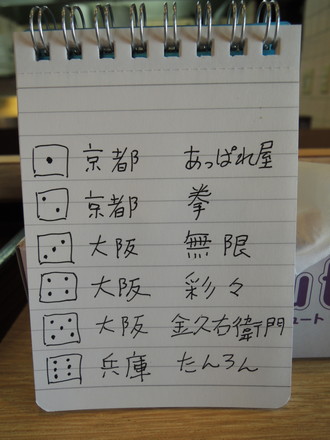 ⚀ 京都 あっぱれ屋
⚁ 京都 拳
⚂ 大阪 無限
⚃ 大阪 彩々
⚄ 大阪 金久右衛門
⚅ 兵庫 たんろん
ート